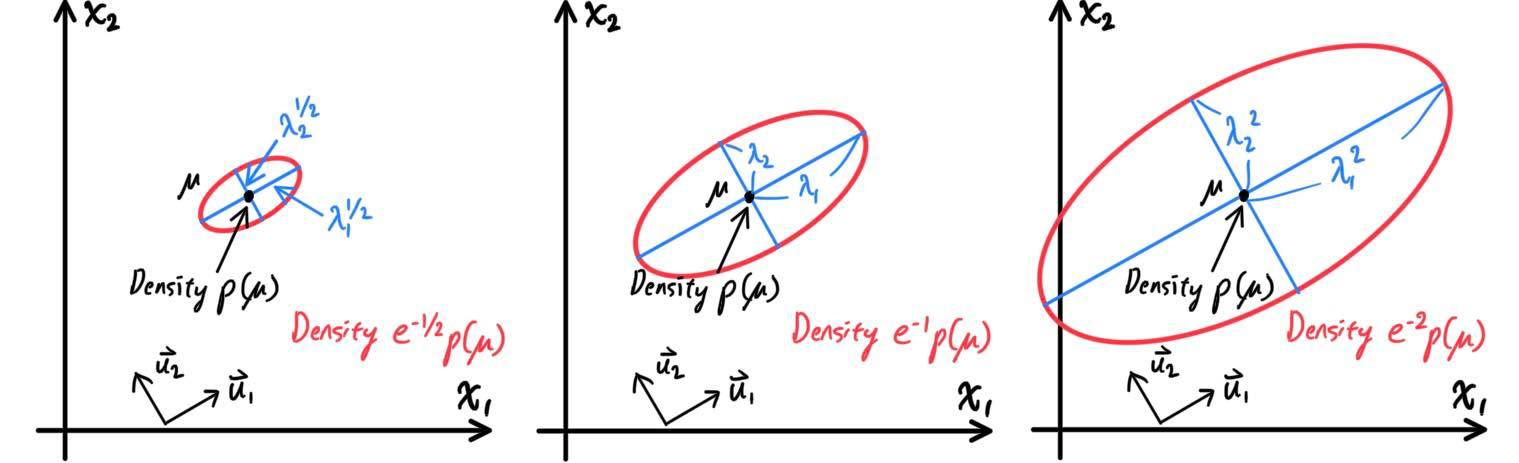 x₂
λ₂^1/2
μ
λ₁^1/2
Density p(μ)
Density e^-1/2 p(μ)
u⃗₂
u⃗₁
x₁
x₂
λ₂
μ
λ₁
Density p(μ)
Density e^-1 p(μ)
u⃗₂
u⃗₁
x₁
x₂
λ₂²
λ₁²
μ
Density p(μ)
Density e^-2 p(μ)
u⃗₂
u⃗₁
x₁